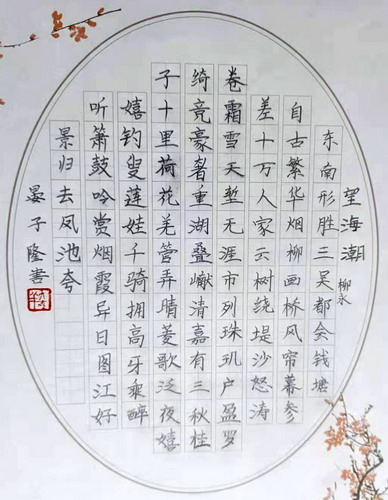 望海潮
柳永
东南形胜三吴都会钱塘
自古繁华烟柳画桥风帘幕参
差十万人家云树绕堤沙怒涛
卷霜雪天堑无涯市列珠玑户盈罗
绮竞豪奢重湖叠巘清嘉有三秋桂
子十里荷花羌管弄晴菱歌泛夜嬉
嬉钓叟莲娃千骑拥高牙乘醉
听箫鼓吟赏烟霞异日图江好
景归去凤池夸
晏子隆书